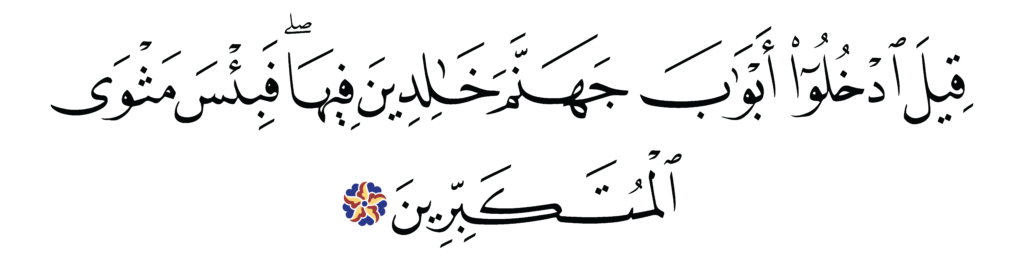 قِيلَ ٱدۡخُلُوٓاْ أَبۡوَٰبَ جَهَنَّمَ خَٰلِدِينَ فِيهَاۖ فَبِئۡسَ مَثۡوَى
ٱلۡمُتَكَبِّرِينَ